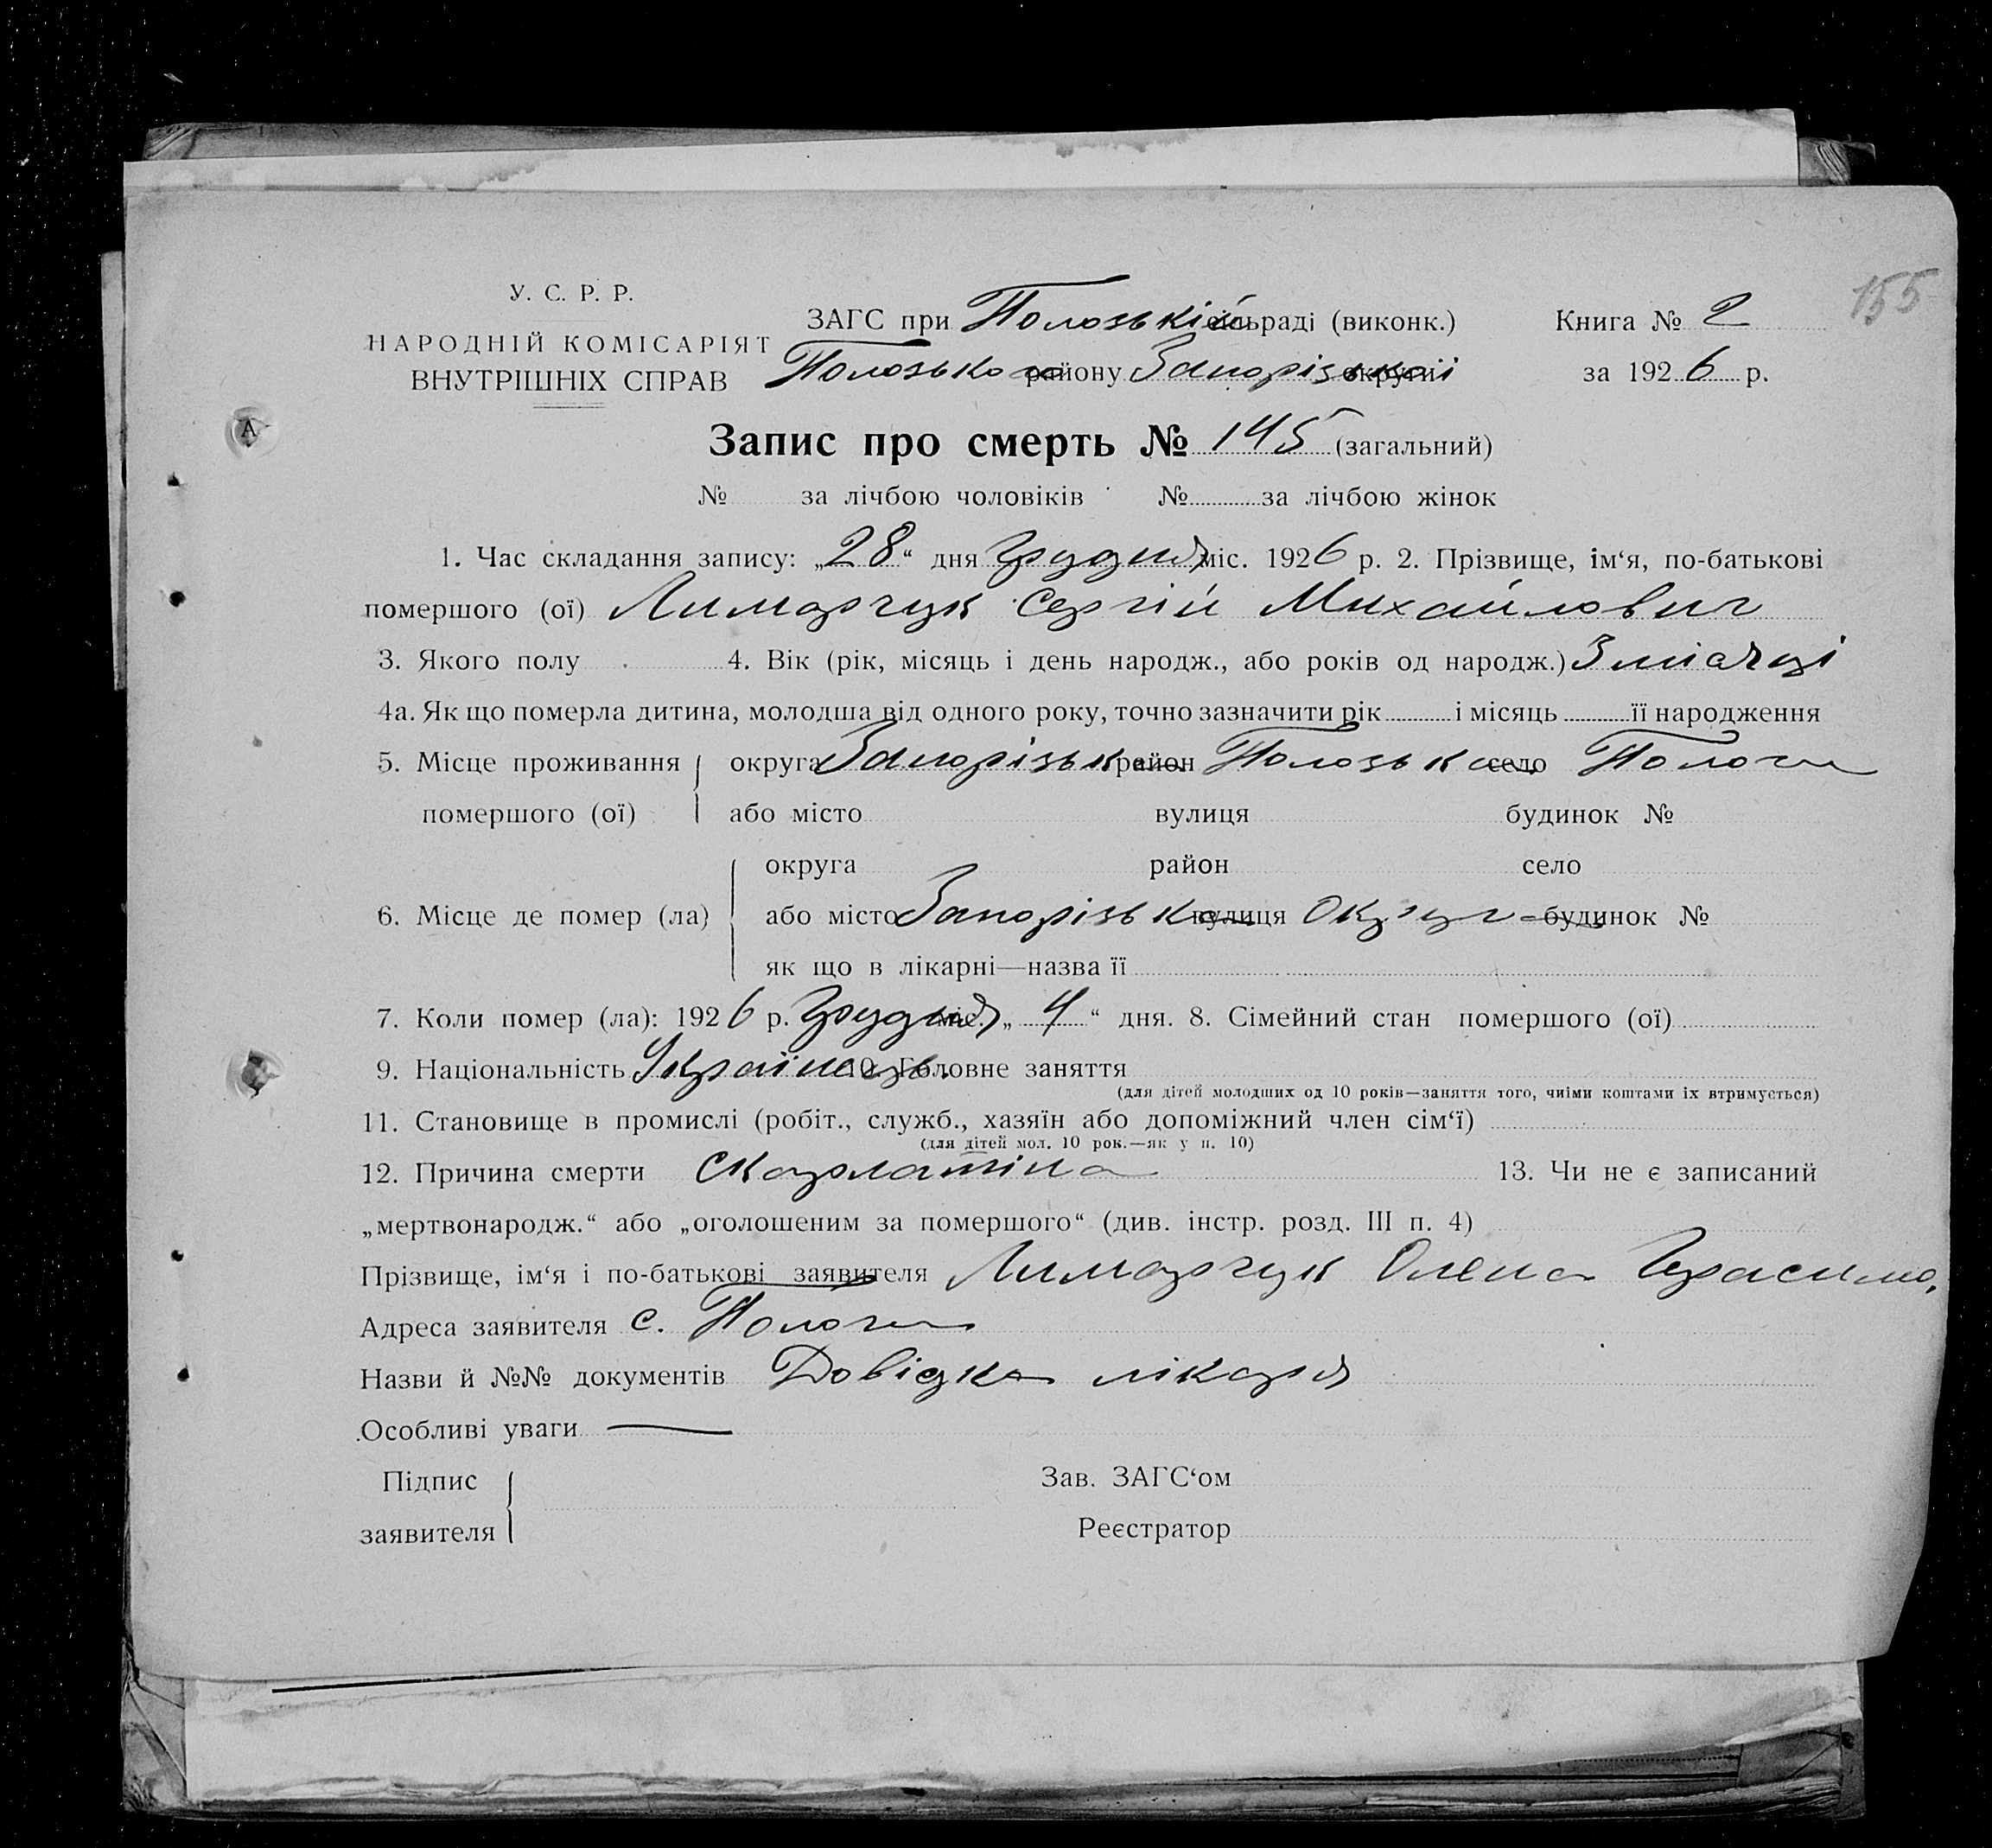 155
У. С. Р. Р.
НАРОДНІЙ КОМІСАРІЯТ
ВНУТРІШНІХ СПРАВ
ЗАГС при Положській сільраді (виконк.)
Пологського району Запорізької округи
Книга № 2
за 1926 р.
Запис про смерть № 145 (загальний)
№ за лічбою чоловіків № за лічбою жінок
1. Час складання запису: „28“ дня Грудня міс. 1926 р. 2. Прізвище, ім‘я, по-батькові
помершого (ої) Лимарчук Сергій Михайлович
3. Якого полу 4. Вік (рік, місяць і день народж., або років од народж.) 3 місяці
4а. Як що померла дитина, молодша від одного року, точно зазначити рік і місяць її народження
5. Місце проживання округа Запорізька район Положська село Пологи
помершого (ої) або місто вулиця будинок №
округа район село
6. Місце де помер (ла) або місто Запорізька вулиця будинок №
як що в лікарні—назва її
7. Коли помер (ла): 1926 р. Грудня міс. „4“ дня. 8. Сімейний стан помершого (ої)
9. Національність Українець. 10. Головне заняття
(для дітей молодших од 10 років—заняття того, чиїми коштами їх втримується)
11. Становище в промислі (робіт., служб., хазяїн або допоміжний член сім‘ї)
(для дітей мол. 10 рок.—як у п. 10)
12. Причина смерти скарлатіна 13. Чи не є записаний
„мертвонародж.“ або „оголошеним за помершого“ (див. інстр. розд. III п. 4)
Прізвище, ім‘я і по-батькові заявителя Лимарчук Олена Герасимо.
Адреса заявителя с. Пологи
Назви й №№ документів Довідка лікаря
Особливі уваги —
Підпис
заявителя
Зав. ЗАГС‘ом
Реєстратор